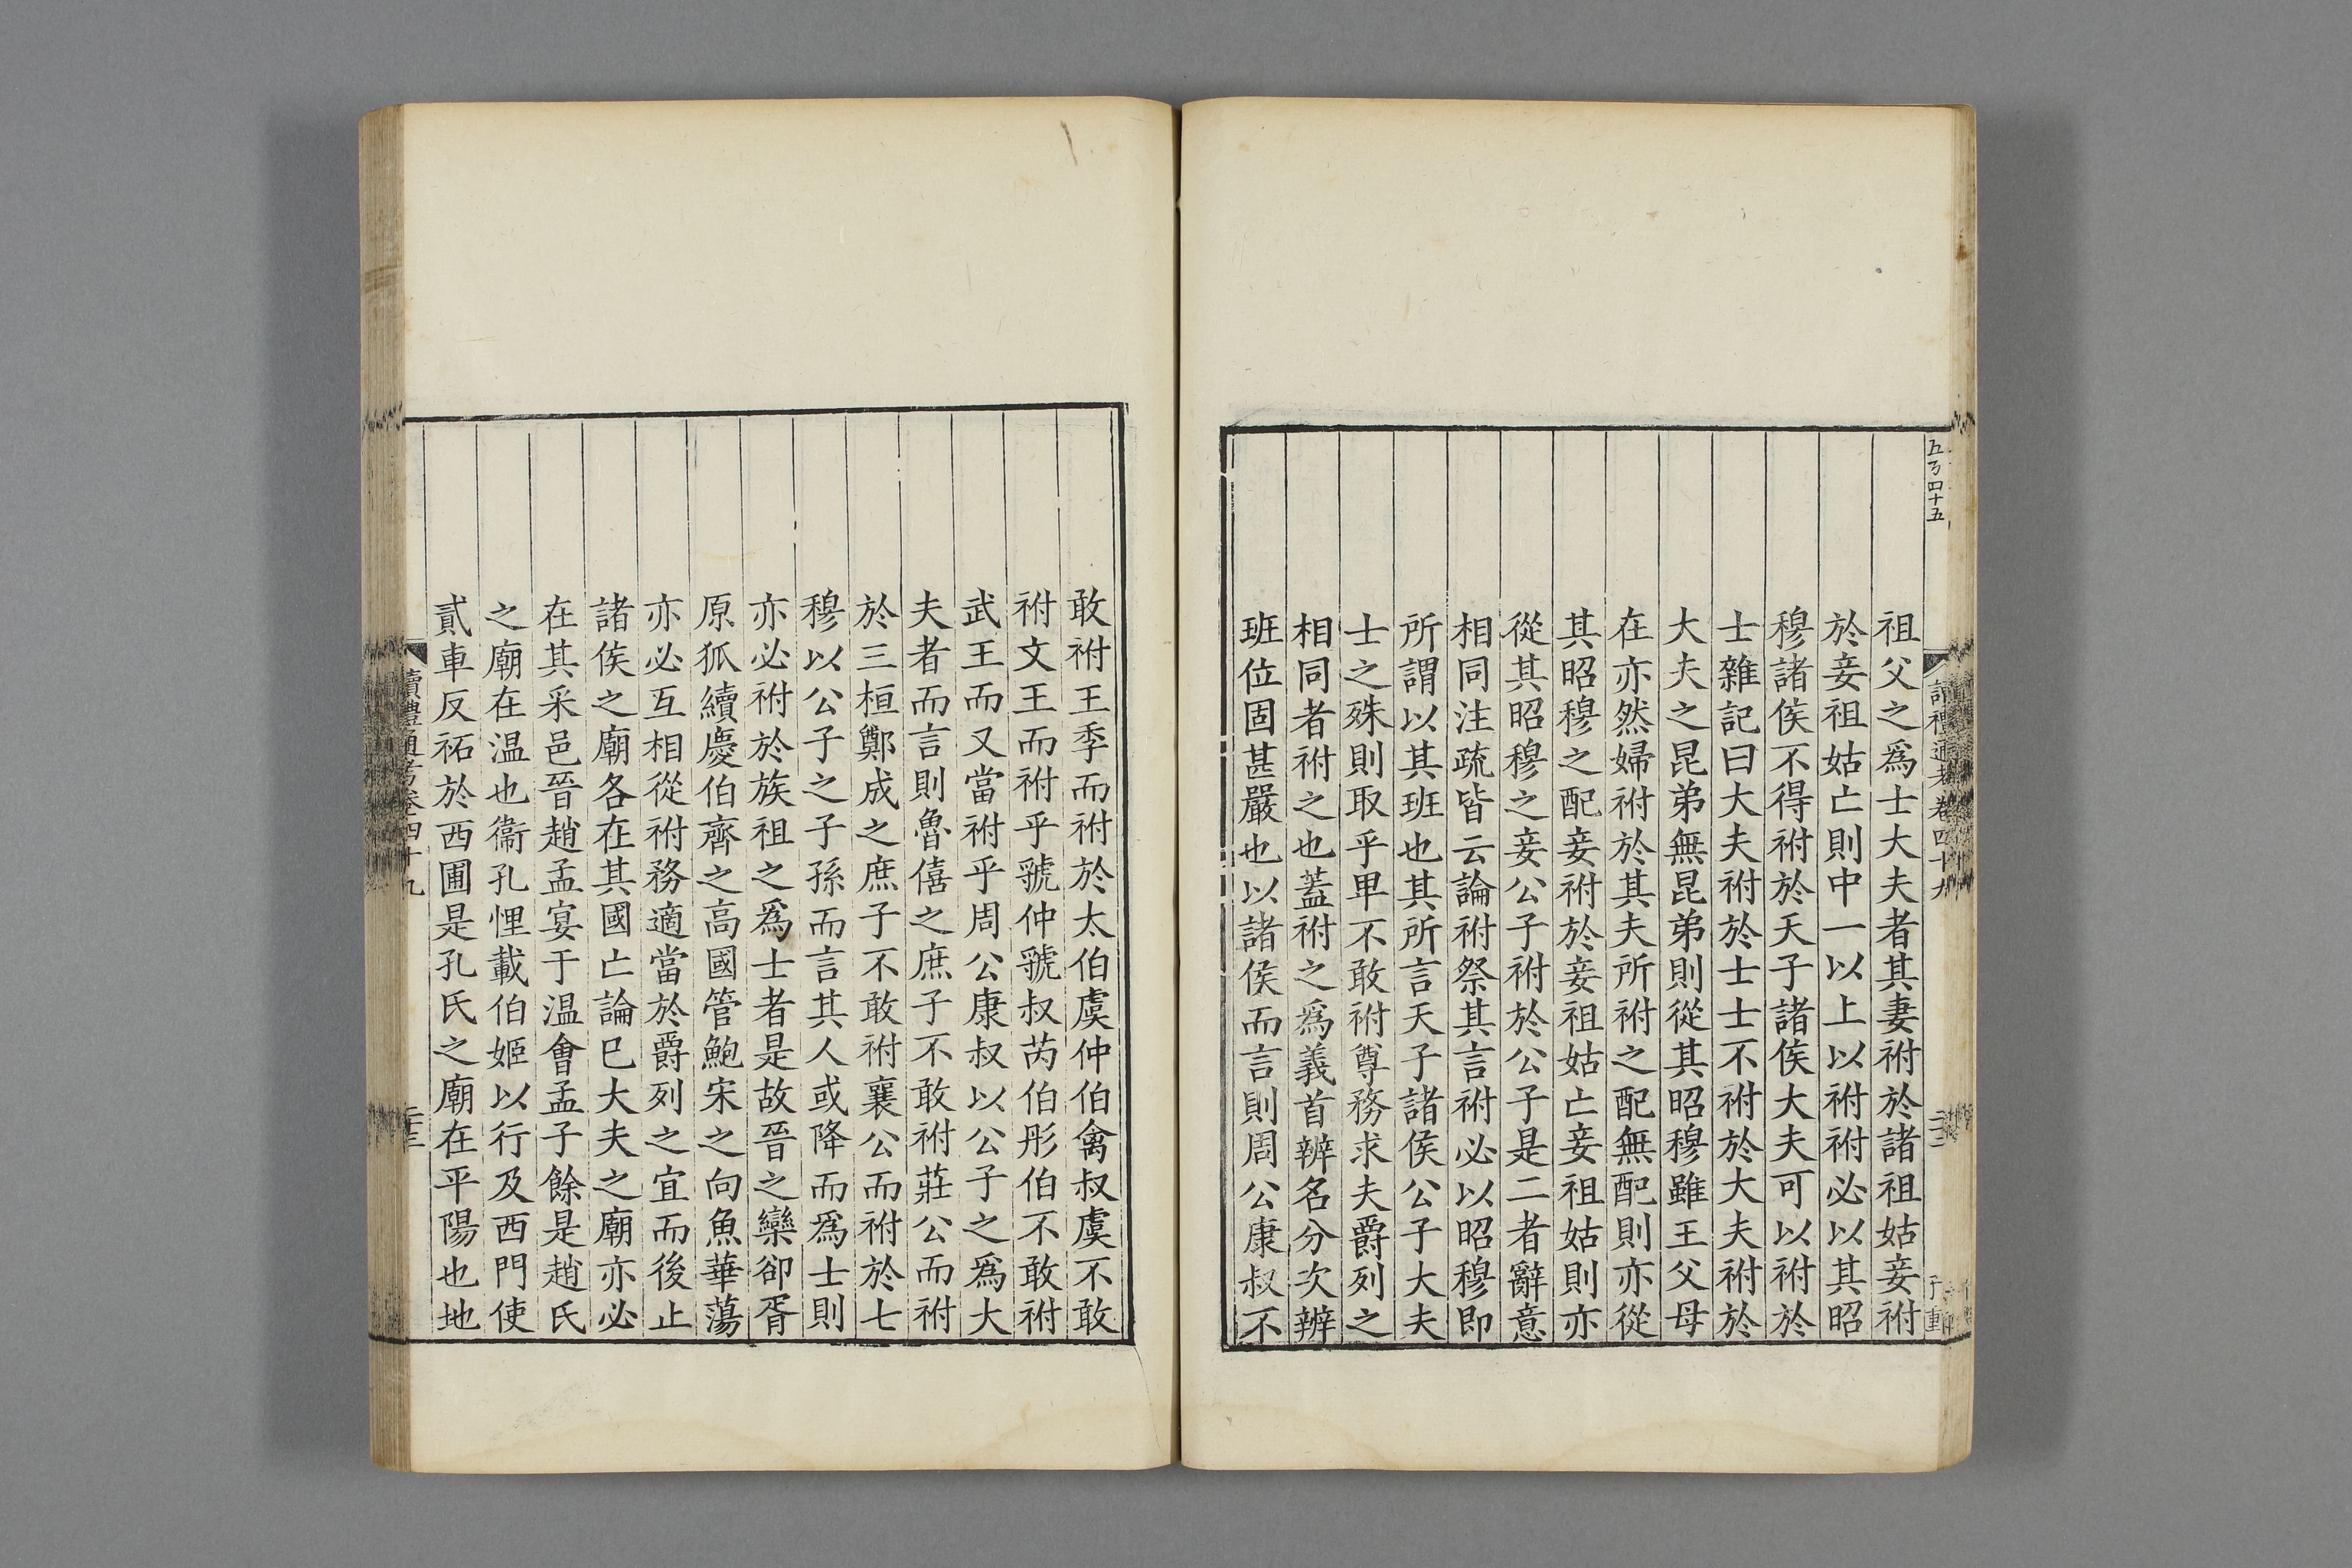 祖父之爲士大夫者其妻祔於諸祖姑妾祔
於妾祖姑亡則中一以上以祔祔必以其昭
穆諸侯不得祔於天子諸侯大夫可以祔於
士雜記曰大夫祔於士士不祔於大夫祔於
大夫之昆弟無昆弟則從其昭穆雖王父母
在亦然婦祔於其夫所祔之配無配則亦從
其昭穆之配妾祔於妾祖姑亡妾祖姑則亦
從其昭穆之妾公子祔於公子是二者辭意
相同注疏皆云論祔祭其言祔必以昭穆即
所謂以其班也其所言天子諸侯公子大夫
士之殊則取乎卑不敢祔尊務求夫爵列之
相同者祔之也蓋祔之爲義首辨名分次辨
班位固甚嚴也以諸侯而言則周公康叔不
敢祔王季而祔於太伯虞仲伯禽叔虞不敢
祔文王而祔乎虢仲虢叔芮伯彤伯不敢祔
武王而又當祔乎周公康叔以公子之爲大
夫者而言則魯僖之庶子不敢祔莊公而祔
於三桓鄭成之庶子不敢祔襄公而祔於七
穆以公子之子孫而言其人或降而爲士則
亦必祔於族祖之爲士者是故晉之欒卻胥
原狐續慶伯齊之高國管鮑宋之向魚華蕩
亦必互相從祔務適當於爵列之宜而後止
諸侯之廟各在其國亡論巳大夫之廟亦必
在其采邑晉趙孟宴于温會孟子餘是趙氏
之廟在温也衞孔悝載伯姬以行及西門使
貳車反祏於西圃是孔氏之廟在平陽也地
讀禮通考卷四十九